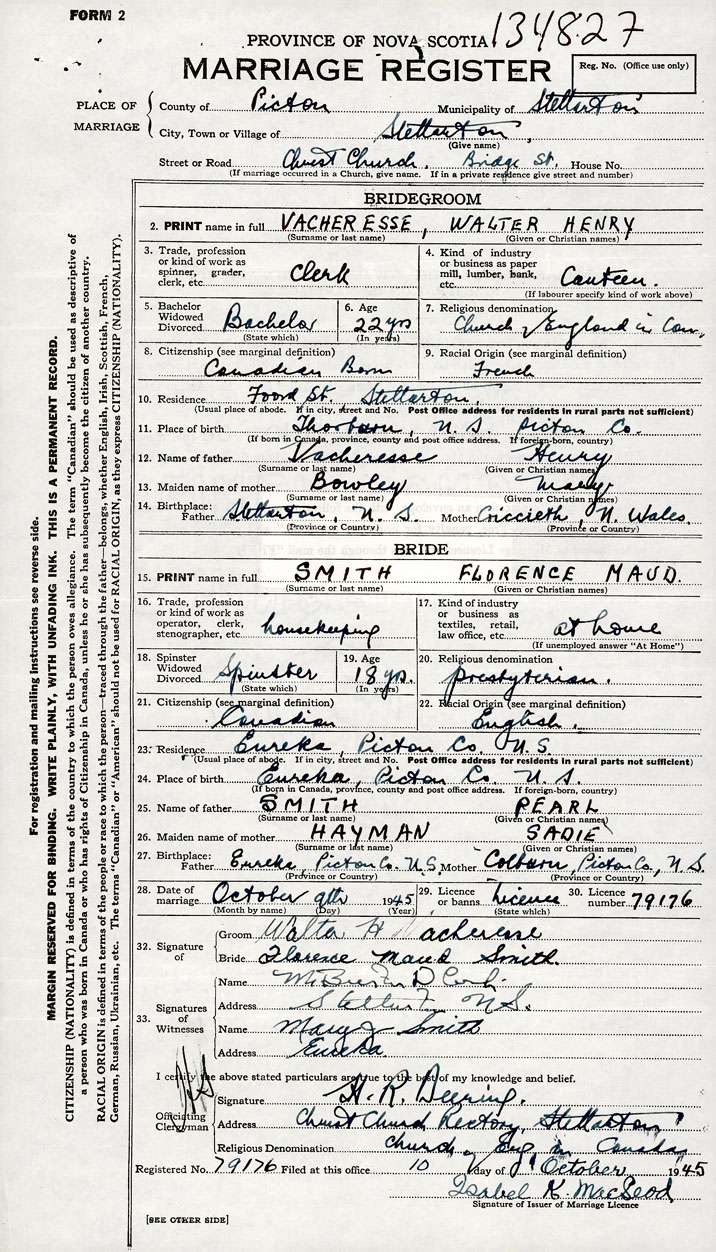 FORM 2
134827
PROVINCE OF NOVA SCOTIA
MARRIAGE REGISTER
Reg. No. (Office use only)
PLACE OF MARRIAGE
County of Picton Municipality of Stellarton
City, Town or Village of Stellarton
(Give name)
Street or Road Christ Church, Bridge St. House No.
(If marriage occurred in a Church, give name. If in a private residence give street and number)
BRIDEGROOM
2. PRINT name in full VACHERESSE, WALTER HENRY
(Surname or last name) (Given or Christian names)
3. Trade, profession or kind of work as spinner, grader, clerk, etc. Clerk
4. Kind of industry or business as paper mill, lumber, bank, etc. Canteen.
(If labourer specify kind of work above)
5. Bachelor Widowed Divorced Bachelor
(State which)
6. Age 22 yrs
(In years)
7. Religious denomination
Church of England in Can.
8. Citizenship (see marginal definition)
Canadian Born
9. Racial Origin (see marginal definition)
French
10. Residence Foord St., Stellarton,
(Usual place of abode. If in city, street and No. Post Office address for residents in rural parts not sufficient)
11. Place of birth Thorburn, N. S. Picton Co.
(If born in Canada, province, county and post office address. If foreign-born, country)
12. Name of father Vacheresse Henry
(Surname or last name) (Given or Christian names)
13. Maiden name of mother Bowley Mary
(Surname or last name) (Given or Christian names)
14. Birthplace: Father Stellarton, N. S. Mother Criccieth, N. Wales.
(Province or Country) (Province or Country)
BRIDE
15. PRINT name in full SMITH FLORENCE MAUD.
(Surname or last name) (Given or Christian names)
16. Trade, profession or kind of work as operator, clerk, stenographer, etc. housekeeping
17. Kind of industry or business as textiles, retail, law office, etc. at home
(If unemployed answer "At Home")
18. Spinster Widowed Divorced Spinster
(State which)
19. Age 18 yrs.
(In years)
20. Religious denomination
presbyterian.
21. Citizenship (see marginal definition)
Canadian
22. Racial Origin (see marginal definition)
English.
23. Residence Eureka, Picton Co. N. S.
(Usual place of abode. If in city, street and No. Post Office address for residents in rural parts not sufficient)
24. Place of birth Eureka, Picton Co. N. S.
(If born in Canada, province, county and post office address. If foreign-born, country)
25. Name of father SMITH PEARL
(Surname or last name) (Given or Christian names)
26. Maiden name of mother HAYMAN SADIE
(Surname or last name) (Given or Christian names)
27. Birthplace: Father Eureka, Picton Co. N.S. Mother Colburn, Picton Co, N. S.
(Province or Country) (Province or Country)
28. Date of marriage October 9th 1945
(Month by name) (Day) (Year)
29. Licence or banns Licence
(State which)
30. Licence number 79176
32. Signature of
Groom Walter H Vacheresse
Bride Florence Maud Smith.
33. Signatures of Witnesses
Name
Address Stellarton N.S.
Name Mary J Smith
Address Eureka
I certify the above stated particulars are true to the best of my knowledge and belief.
Officiating Clergyman
Signature H. R. Deering.
Address Christ Church Rectory, Stellarton
Religious Denomination Church of Eng in Canada
Registered No. 79176 Filed at this office 10 day of October 1945
Isabel K. MacLeod
Signature of Issuer of Marriage Licence
[SEE OTHER SIDE]
For registration and mailing instructions see reverse side.
MARGIN RESERVED FOR BINDING. WRITE PLAINLY, WITH UNFADING INK. THIS IS A PERMANENT RECORD.
CITIZENSHIP (NATIONALITY) is defined in terms of the country to which the person owes allegiance. The term "Canadian" should be used as descriptive of
a person who was born in Canada or who has rights of Citizenship in Canada, unless he or she has subsequently become the citizen of another country.
RACIAL ORIGIN is defined in terms of the people or race to which the person—traced through the father—belongs, whether English, Irish, Scottish, French,
German, Russian, Ukrainian, etc. The terms "Canadian" or "American" should not be used for RACIAL ORIGIN, as they express CITIZENSHIP (NATIONALITY).